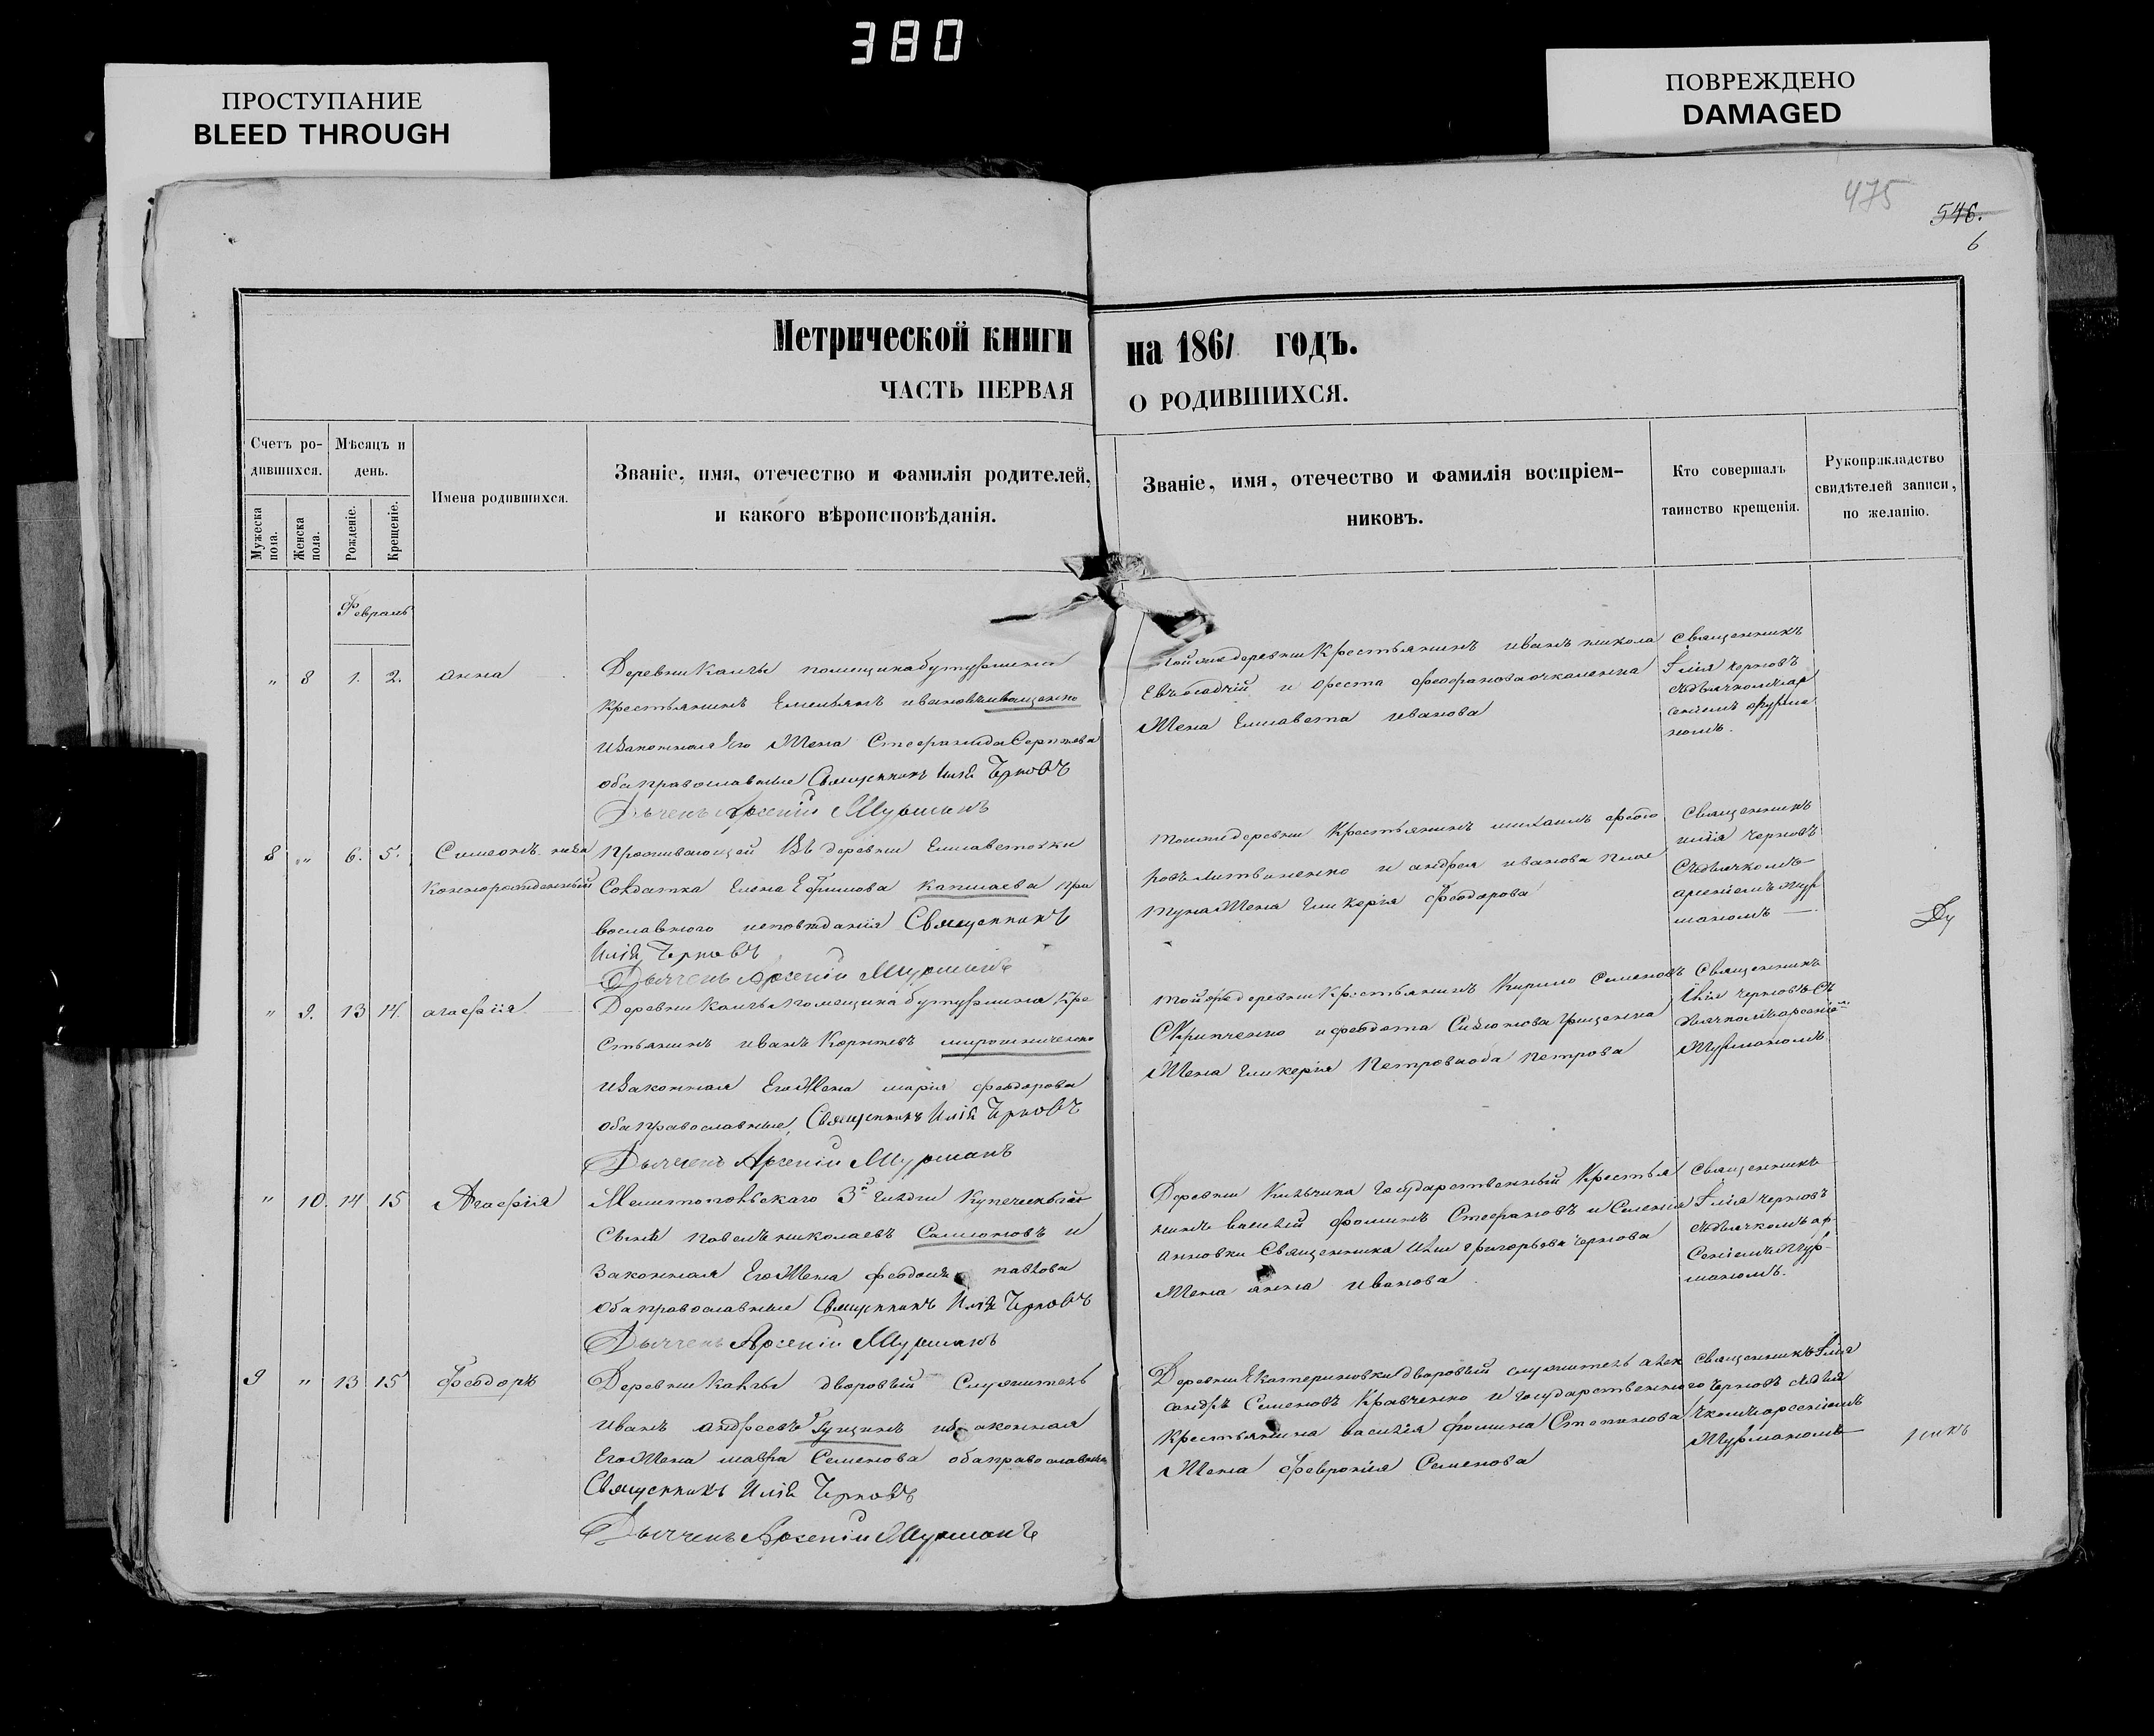 380
ПРОСТУПАНИЕ
BLEED THROUGH
ПОВРЕЖДЕНО
DAMAGED
475
546.
6
Метрической книги на 1861 годъ.
ЧАСТЬ ПЕРВАЯ О РОДИВШИХСЯ.
Счетъ ро-
дившихся.
Мужеска
пола.
Женска
пола.
Мѣсяцъ и
день.
Рожденіе.
Крещеніе.
Имена родившихся.
Званіе, имя, отечество и фамилія родителей,
и какого вѣроисповѣданія.
Званіе, имя, отечество и фамилія воспріем-
никовъ.
Кто совершалъ
таинство крещенія.
Рукоприкладство
свидѣтелей записи,
по желанію.
Февраль
" 8 1. 2. анна
Деревни помещика
крестьянинъ Емельянъ ивановъ иващенко
изаконная его Жена Стефанида Сергѣева
оба православные Священникъ Илія Черновъ
Дьячекъ Арсеній Мурманъ
тойже деревни крестьянинъ иванъ никола
евъ и ореста
Жена Елисавета иванова
Священникъ
Ілія черновъ
сдьячкомъ ар
сеніемъ мурма
номъ.
8 " 6. 5. Симеонъ неза
коннорожденный
Проживающей Въ деревни Елисаветовки
Солдатка Елена Ефимова капшаева пра
вославного исповѣданія Священникъ
Илія Черновъ
Дьячекъ Арсеній Мурманъ
тойже деревни Крестьянинъ михаилъ федо
ровъ литвиненко и андрея иванова
Жена гликерія феодорова
Священникъ
илія черновъ
Сдьячкомъ
арсеніемъ мур
маномъ
Ду
" 9. 13 14. агафія
Деревни помещика кре
стьянинъ иванъ Корнѣевъ мирошниченко
изаконная Его Жена марія феодорова
оба православные, Священникъ Илія Черновъ
Дьячекъ Арсеній Мурманъ
тойже деревни Крестьянинъ Кирило Семеновъ
Скрипченко и грищенка
Жена гликерія Петрова оба Петрова
Священникъ
Илія черновъ Съ
дьячкомъ арсеніе
Мурманомъ
" 10. 14 15 Агафія
Мелитопольскаго 3й гилдіи купеческій
Сынъ павелъ николаевъ Самионовъ и
законная Его Жена феодосія павлова
оба православные Священникъ Илія Черновъ
Дьячекъ Арсеній Мурманъ
Деревни государственный Крестья
нинъ василій фоминъ Стефановъ и
анновки Священника иліи григорьева чернова
Жена анна иванова
Священникъ
Ілія черновъ
сдьячкомъ ар
сеніемъ Мур-
маномъ.
9 " 13 15 Феодоръ
Деревни дворовый Служитель
иванъ андреевъ Гущинъ изаконная
Его Жена мавра Семенова оба православные
Священникъ Илія Черновъ
Дьячекъ Арсеній Мурманъ
Деревни Екатериновки дворовый служитель алек
сандръ Семеновъ Кравченко и государственного
крестьянина василія фомина Степанова
Жена феврония Семенова
Священникъ Ілія
черновъ сдья
чкомъ арсеніемъ
Мурманомъ